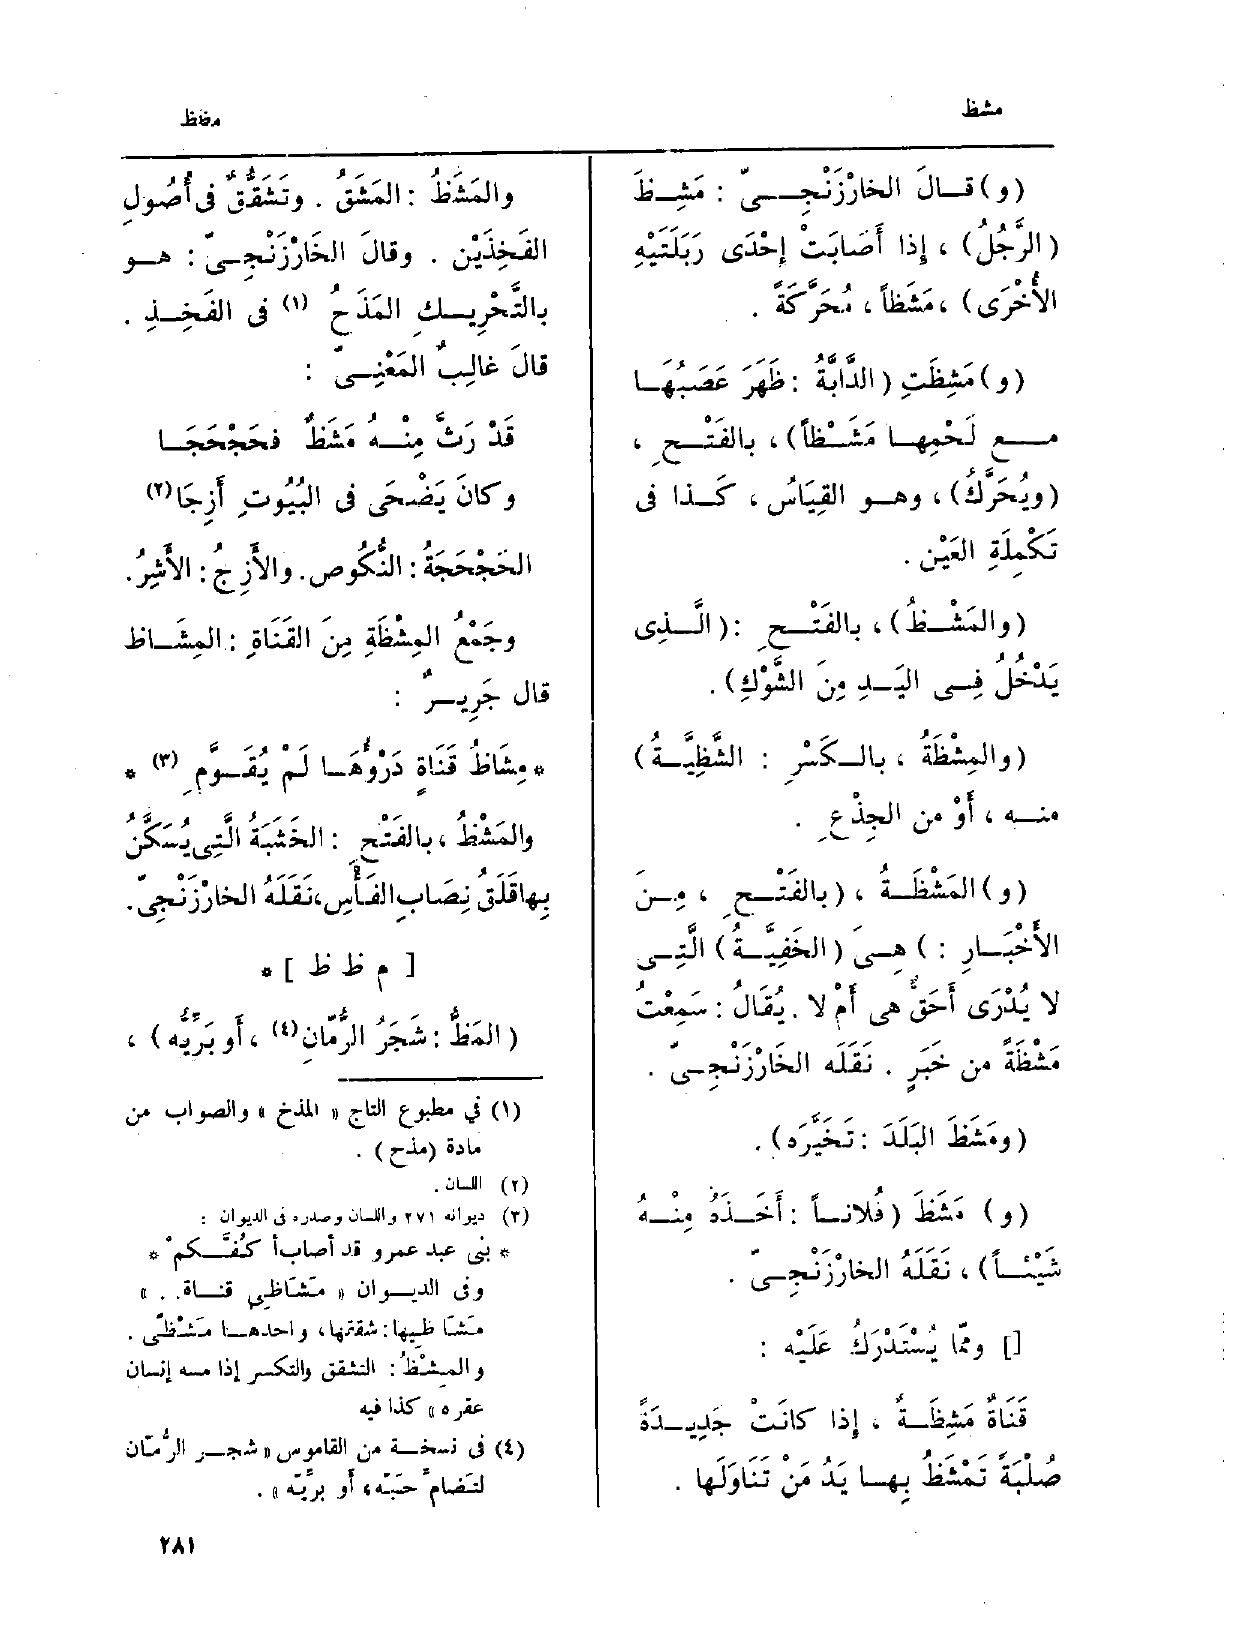 مشظ
مظظ
(و) قــالَ الخارْزَنْجِــىّ : مَشِــظَ
(الرَّجُلُ) ، إذا أَصَابَتْ إِحْدَى رَبَلَتَيْهِ
الأُخْرَى) ، مَشَظاً ، مُحَرَّكَةً .
(و) مَشِظَتِ (الدَّابَّةُ : ظَهَرَ عَصَبُهَــا
مــع لَحْمِهــا مَشْــظاً) ، بالفَتْــحِ ،
(ويُحَرَّكُ) ، وهــو القِيَاسُ ، كَــذا فى
تَكْمِلَةِ العَيْن .
(والمَشْــظُ) ، بالفَتْــحِ : (الَّــذِى
يَدْخُلُ فِــى اليَــدِ مِنَ الشَّوْكِ) .
(والمِشْظَةُ ، بالــكَسْرِ : الشَّظِيَّــةُ)
منــه ، أَوْ من الجِذْعِ .
(و) المَشْظَــةُ ، (بالفَتْــحِ ، مِــنَ
الأَخْبَــارِ :) هِــىَ (الخَفِيَّــةُ) الَّتِــى
لا يُدْرَى أَحَقٌّ هى أَمْ لا . يُقَالُ : سَمِعْتُ
مَشْظَةً من خَبَرٍ . نَقَلَه الخَارْزَنْجِــىّ .
(ومَشَظَ البَلَدَ : تَخَيَّرَه) .
(و) مَشَظَ (فُلاناً : أَخَــذَ مِنْــهُ
شَيْئــاً) ، نَقَلَهُ الخارْزَنْجِــىّ .
[] وممّا يُسْتَدْرَكُ عَلَيْه :
قَنَاةٌ مَشِظَــةٌ ، إِذا كانَتْ جَدِيــدَةً
صُلْبَةً تَمْشَظُ بِهــا يَدُ مَنْ تَنَاوَلَها .
والمَشَظُ : المَشَقُ . وتَشَقُّقٌ فى أُصُولِ
الفَخِذَيْن . وقالَ الخَارْزَنْجِــىّ : هــو
بالتَّحْرِيــكِ المَذَحُ (١) فى الفَخِــذِ .
قالَ غالِبٌ المَعْنِــىّ :
قَدْ رَثَّ مِنْــهُ مَشَظٌ فحَجْحَجَــا
وكانَ يَضْحَى فى البُيُوتِ أَزِجَا(٢)
الحَجْحَجَةُ : النُّكُوص . والأَزِجُ : الأَشِرُ.
وجَمْعُ المِشْظَةِ مِنَ القَنَاةِ : المِشَــاظ
قال جَرِيــرٌ :
* مِشَاظُ قَنَاةٍ دَرْؤُهَــا لَمْ يُقَــوَّمِ (٣) *
والمَشْظُ ، بالفَتْحِ : الخَشَبَةُ الَّتِى يُسَكَّنُ
بِها قَلَقُ نِصَابِ الفَأْسِ، نَقَلَهُ الخارْزَنْجِىّ.
[ م ظ ظ ] *
(المَظُّ : شَجَرُ الرُّمّانِ(٤) ، أَو بَرِّيُّه) ،
(١) في مطبوع التاج « المذخ » والصواب من
مادة (مذح) .
(٢) اللسان .
(٣) ديوانه ٢٧١ واللسان وصدره فى الديوان :
* بنى عبد عمرو قد أصاب أكُفَّــكم *
وفى الديــوان « مَشَاظِى قنــاة. . »
مَشَاظِيها : شققها، واحدهــا مَشْظَى .
والمــشَظُ : التشقق والتكسر إذا مسه إنسان
عقره » كذا فيه
(٤) فى نسخــة من القاموس « شجــر الرُّمّان
لتَضَامِّ حَبّه، أو بَرِّيّه » .
٢٨١